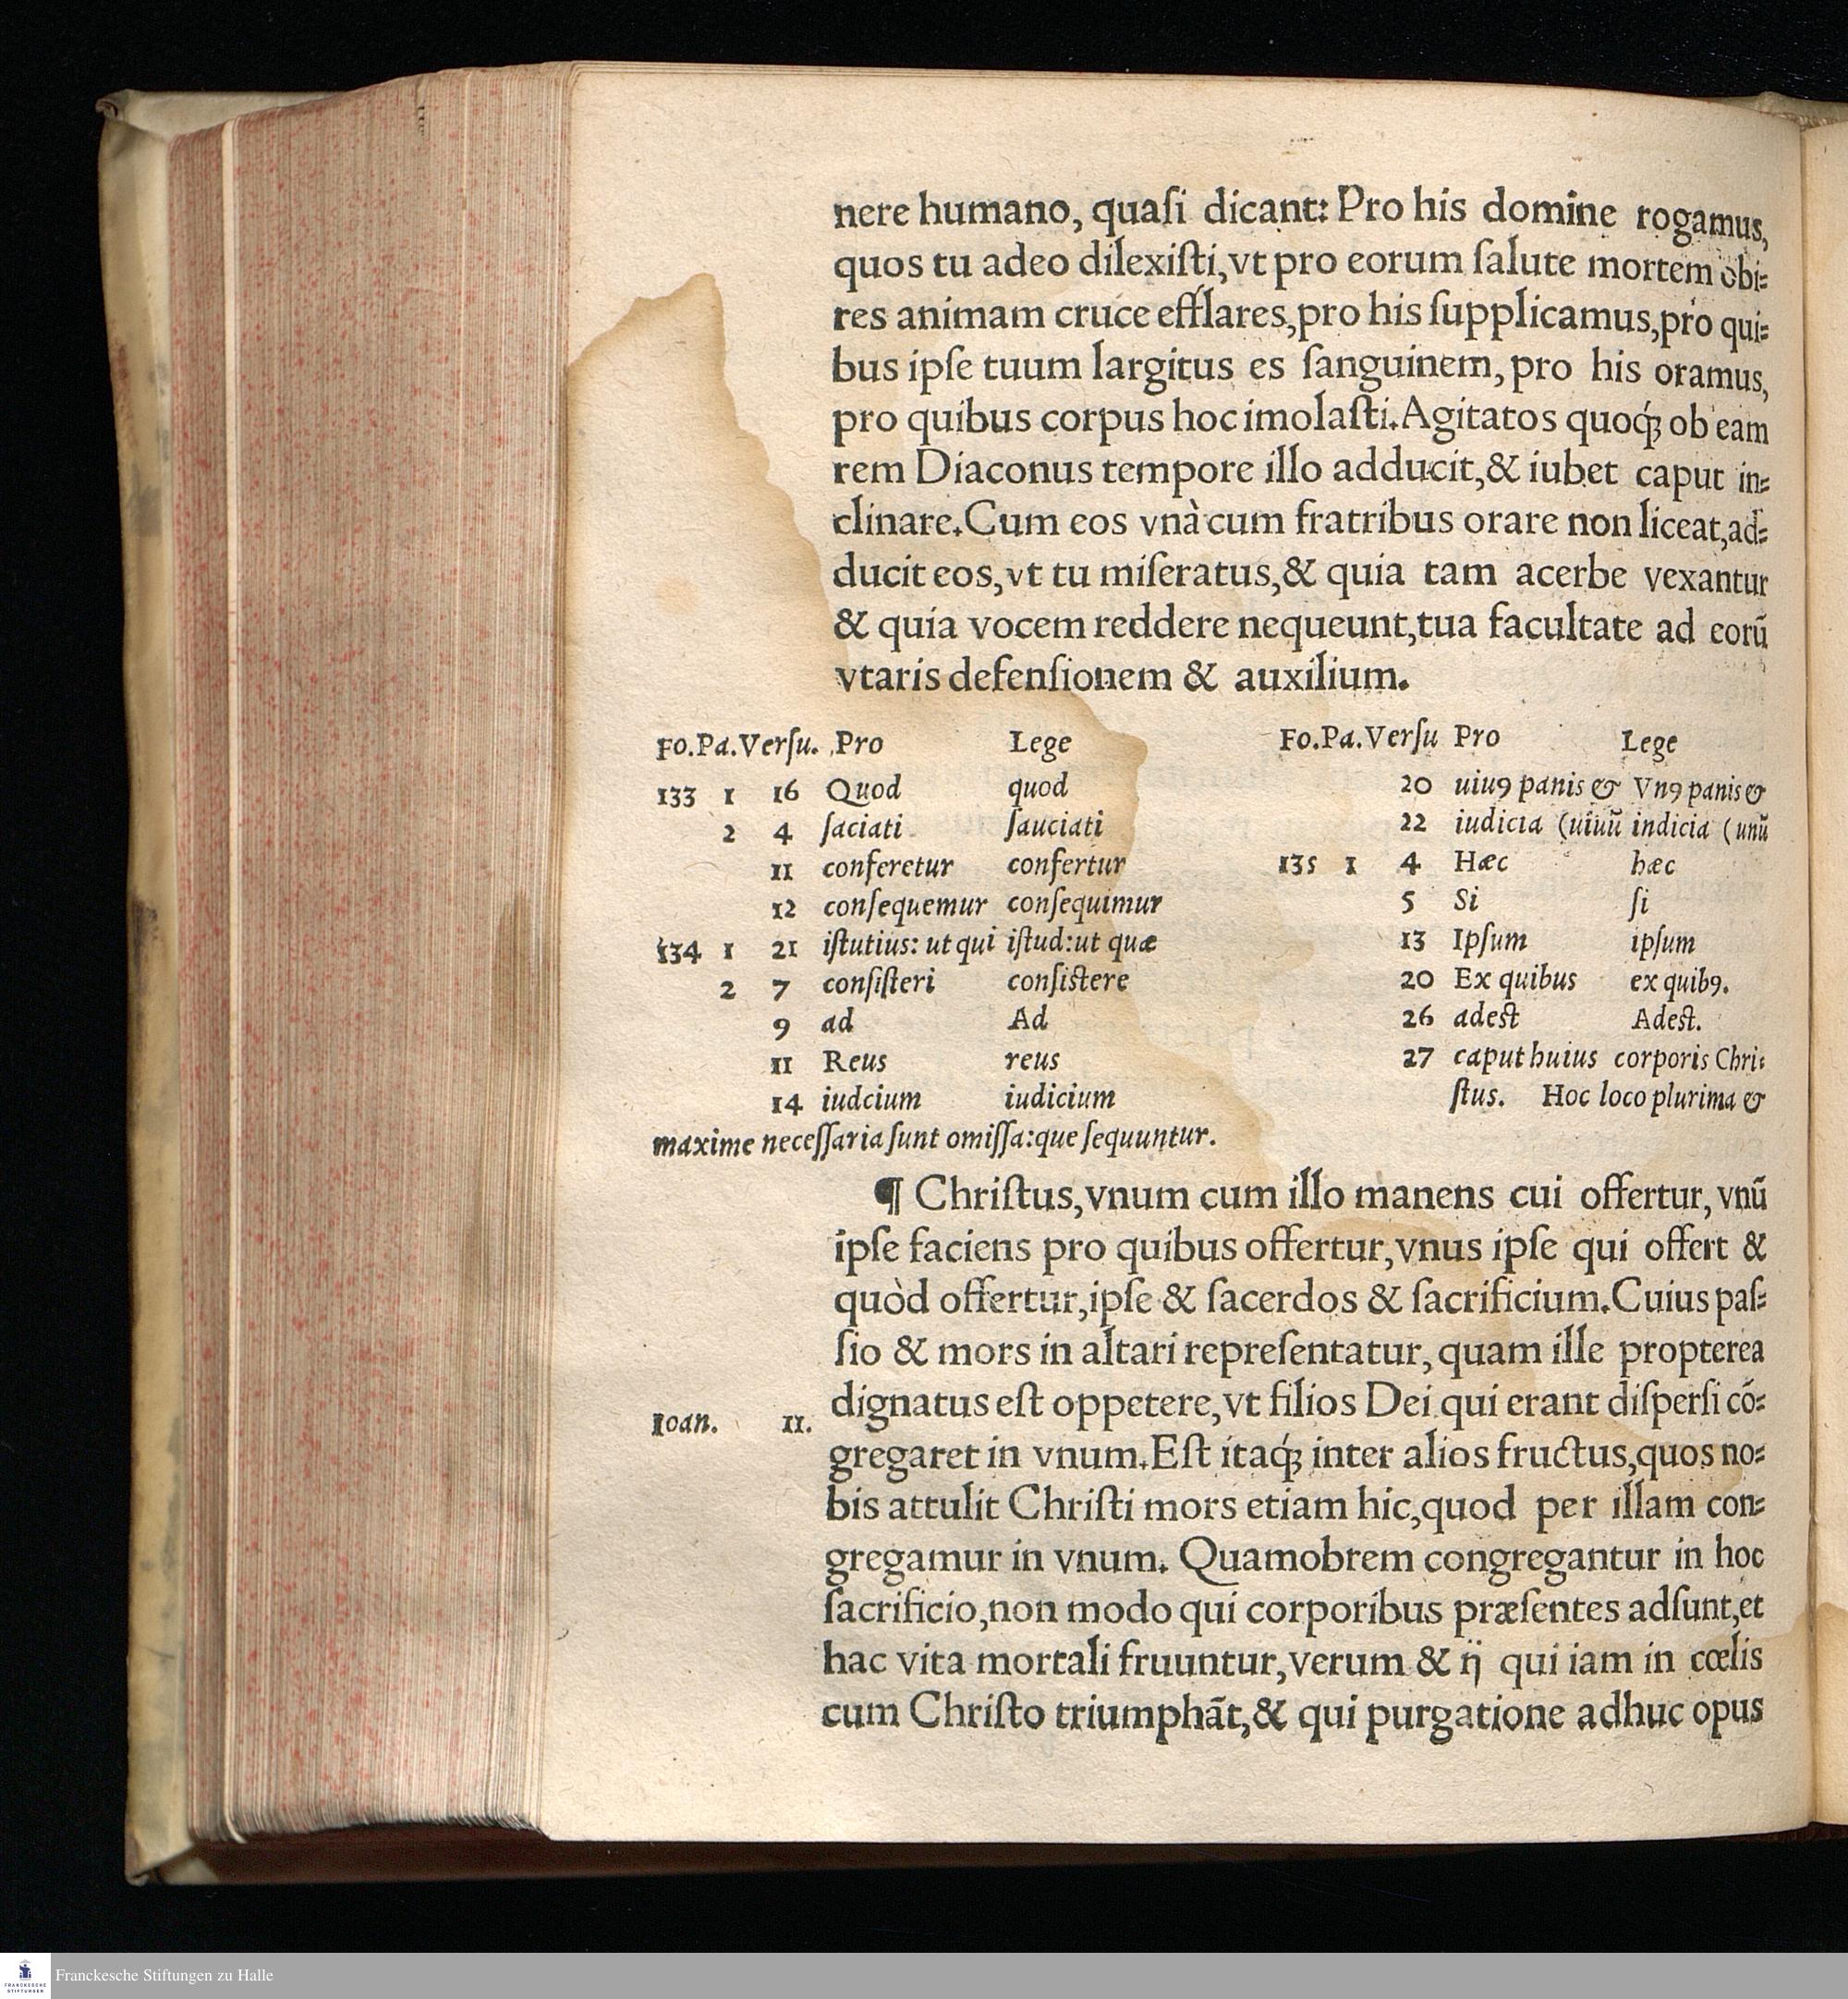 nere humano, quaſi dicant: Pro his domine rogamus,
quos tu adeo dilexiſti,vt pro eorum ſalute mortem obi-
res animam cruce efflares,pro his ſupplicamus,pro qui-
bus ipſe tuum largitus es ſanguinem, pro his oramus,
pro quibus corpus hoc imolaſti.Agitatos quoq́; ob eam
rem Diaconus tempore illo adducit,& iubet caput in-
clinare.Cum eos vnà cum fratribus orare non liceat,ad-
ducit eos,vt tu miſeratus,& quia tam acerbe vexantur
& quia vocem reddere nequeunt,tua facultate ad eorū
vtaris defenſionem & auxilium.
Fo.Pa.Verſu. Pro Lege
133 1 16 Quod quod
2 4 ſaciati ſauciati
11 conferetur confertur
12 conſequemur conſequimur
134 1 21 iſtutius: ut qui iſtud:ut quæ
2 7 conſiſteri conſistere
9 ad Ad
11 Reus reus
14 iudcium iudicium
Fo.Pa.Verſu Pro Lege
20 uiu9 panis & Vn9 panis &
22 iudicia (uiuū indicia (unū
135 1 4 Hæc hæc
5 Si ſi
13 Ipſum ipſum
20 Ex quibus ex quib9.
26 adest Adest.
27 caput huius corporis Chri-
ſtus. Hoc loco plurima &
maxime neceſſaria ſunt omiſſa:que ſequuntur.
¶ Chriſtus,vnum cum illo manens cui offertur, vnū
ipſe faciens pro quibus offertur,vnus ipſe qui offert &
quòd offertur,ipſe & ſacerdos & ſacrificium.Cuius paſ-
ſio & mors in altari repreſentatur, quam ille propterea
dignatus eſt oppetere,vt filios Dei qui erant diſperſi cō-
Ioan. 11.
gregaret in vnum.Eſt itaq́; inter alios fructus,quos no-
bis attulit Chriſti mors etiam hic,quod per illam con-
gregamur in vnum. Quamobrem congregantur in hoc
ſacrificio,non modo qui corporibus præſentes adſunt,et
hac vita mortali fruuntur,verum & ij qui iam in cœlis
cum Chriſto triumphāt,& qui purgatione adhuc opus
Franckesche Stiftungen zu Halle
FRANCKESCHE
STIFTUNGEN